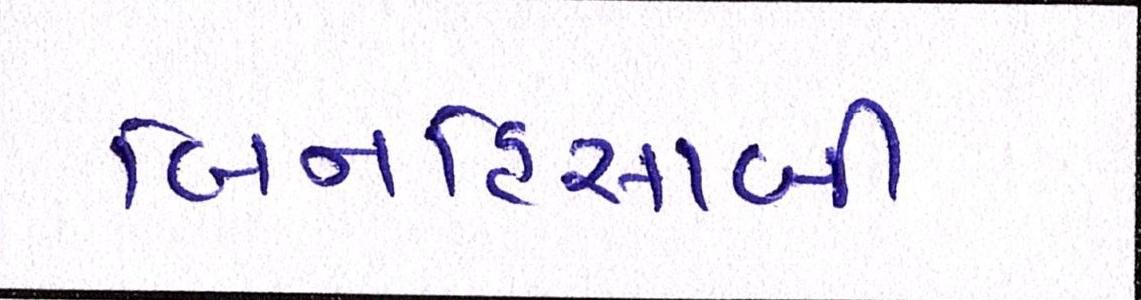 બિનહિસાબી